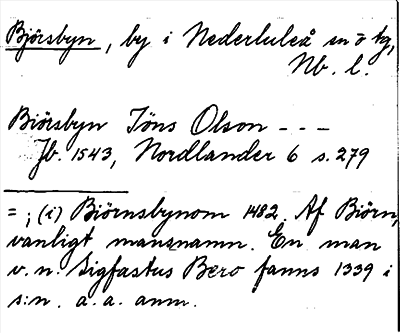 Björsbyn, by i Nederluleå sn o tg,
Nb. l.
Biörsbyn Jöns Olson - - -
Jb. 1543, Nordlander 6 s. 279
= ; (i) Björnsbynom 1482. Af Björn,
vanligt mansnamn. En man
v. n. Sigfastus Bero fanns 1339 i
s:n. a. a. anm.